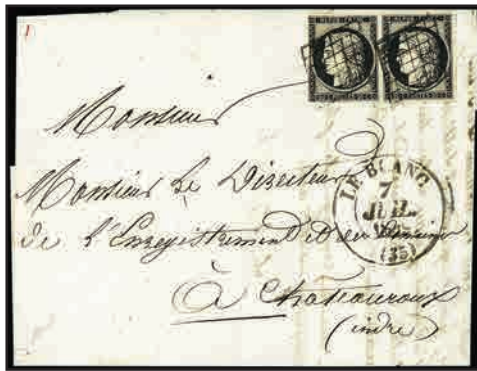 Monsieur
Monsieur Le Directeur
de l'Enregistrement et des Domaines
à Chateauroux
(indre)
LE BLANC
7
JUIL.
(35)